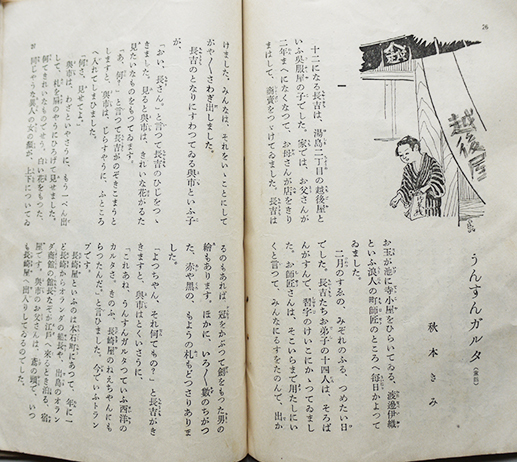 26
越後屋
うんすんガルタ(童話)
秋本きみ
一
十二になる長吉は、湯島二丁目の越後屋と
いふ呉服屋の子でした。家では、お父さんが
二年まへになくなつて、お母さんが店をきり
まはして、商賣をつづけてゐました。長吉は
お玉が池に寺小屋をひらいてゐる、渡邊伊織
といふ浪人の町師匠のところへ毎日かよつて
ゐました。
二月のすゑの、みぞれのふる、つめたい日
でした。長吉たちお弟子の十四人は、そろば
んがすんで、習字のけいこにかゝつてゐまし
た。お師匠さんは、そこいらまで用たしにい
くと言つて、みんなにるすをたのんで、出か
けました。みんなは、それをいゝことにして
がや〱さわぎ出しました。
長吉のとなりにすわつてゐる與市といふ子
が、
「おい、長さん。」と言つて長吉のひじをつゝ
きました。見ると與市は、きれいな花がるた
見たいなものをもつてゐます。
「あ、何?」と言つて長吉がのぞきこまうと
すると、與市は、じらすやうに、ふところ
へ入れてしまひました。
「何さ、見せてよ。」
與市は、わざといやさうに、もう一ぺん出
して、札を扇のやうにひろげて見せました。
きれいなものでせう。白い花をもつた、
同じやうな異人の女の顔が、上下についてゐ
るのもあれば、冠をかぶつて劍をもつた男の
繪もあります。ほかに、いろ〱數のちがつ
た、赤や黒の、もようの札もどつさりありま
した。
「よつちやん、それ何ての?」と長吉がき
きますと、與市はとくいさうに、
「これあね、うんすんガルタつていふ西洋の
カルタさ。きのふ、長崎屋のねえちやんにも
らつたんだ。」と言ひました。今でいふトラン
プです。
長崎屋といふのは本石町にあつて、年に一
ど長崎からオランダの船長や、出島のオラン
ダ商館の館長などが江戸へ來るとき泊る、宿
屋です。與市のお父さんは、鳶の頭で、いつ
も長崎屋へ出入りしてゐるのでした。